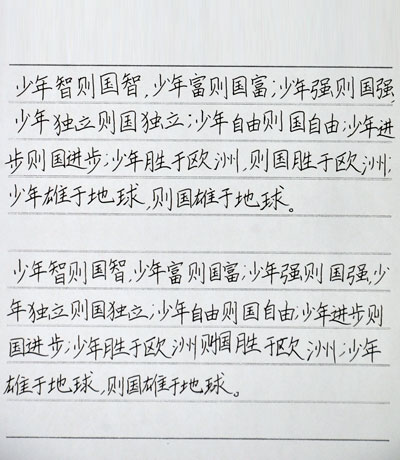 少年智则国智,少年富则国富;少年强则国强,
少年独立则国独立;少年自由则国自由;少年进
步则国进步;少年胜于欧洲,则国胜于欧洲;
少年雄于地球,则国雄于地球。
少年智则国智,少年富则国富;少年强则国强,少
年独立则国独立;少年自由则国自由;少年进步则
国进步;少年胜于欧洲则国胜于欧洲;少年
雄于地球,则国雄于地球。